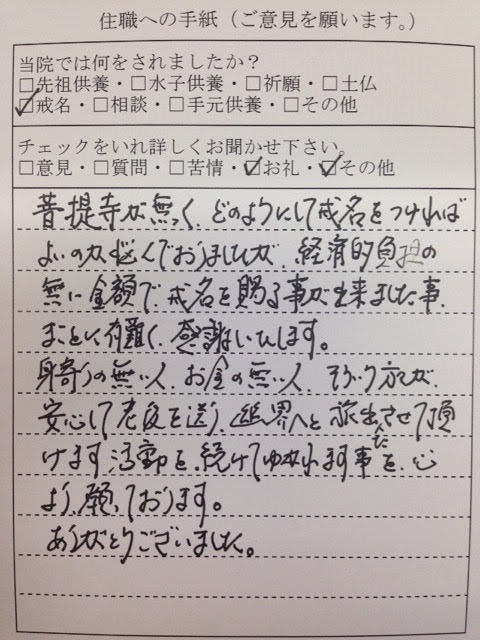 住職への手紙（ご意見を願います。）
当院では何をされましたか？
□先祖供養・□水子供養・□祈願・□土仏
☑戒名・□相談・□手元供養・□その他
チェックをいれ詳しくお聞かせ下さい。
□意見・□質問・□苦情・☑お礼・☑その他
菩提寺が無く、どのようにして戒名をつければ
よいのか悩んでおりましたが、経済的負担の
無い金額で、戒名を賜る事が出来ました事、
まことに有難く、感謝いたします。
身寄りの無い人、お金の無い人、そういう方々が、
安心して老後を送り、極楽界へと旅立たせて頂
けます活動を、続けてゆかれます事を、心
より、願っております。
ありがとうございました。